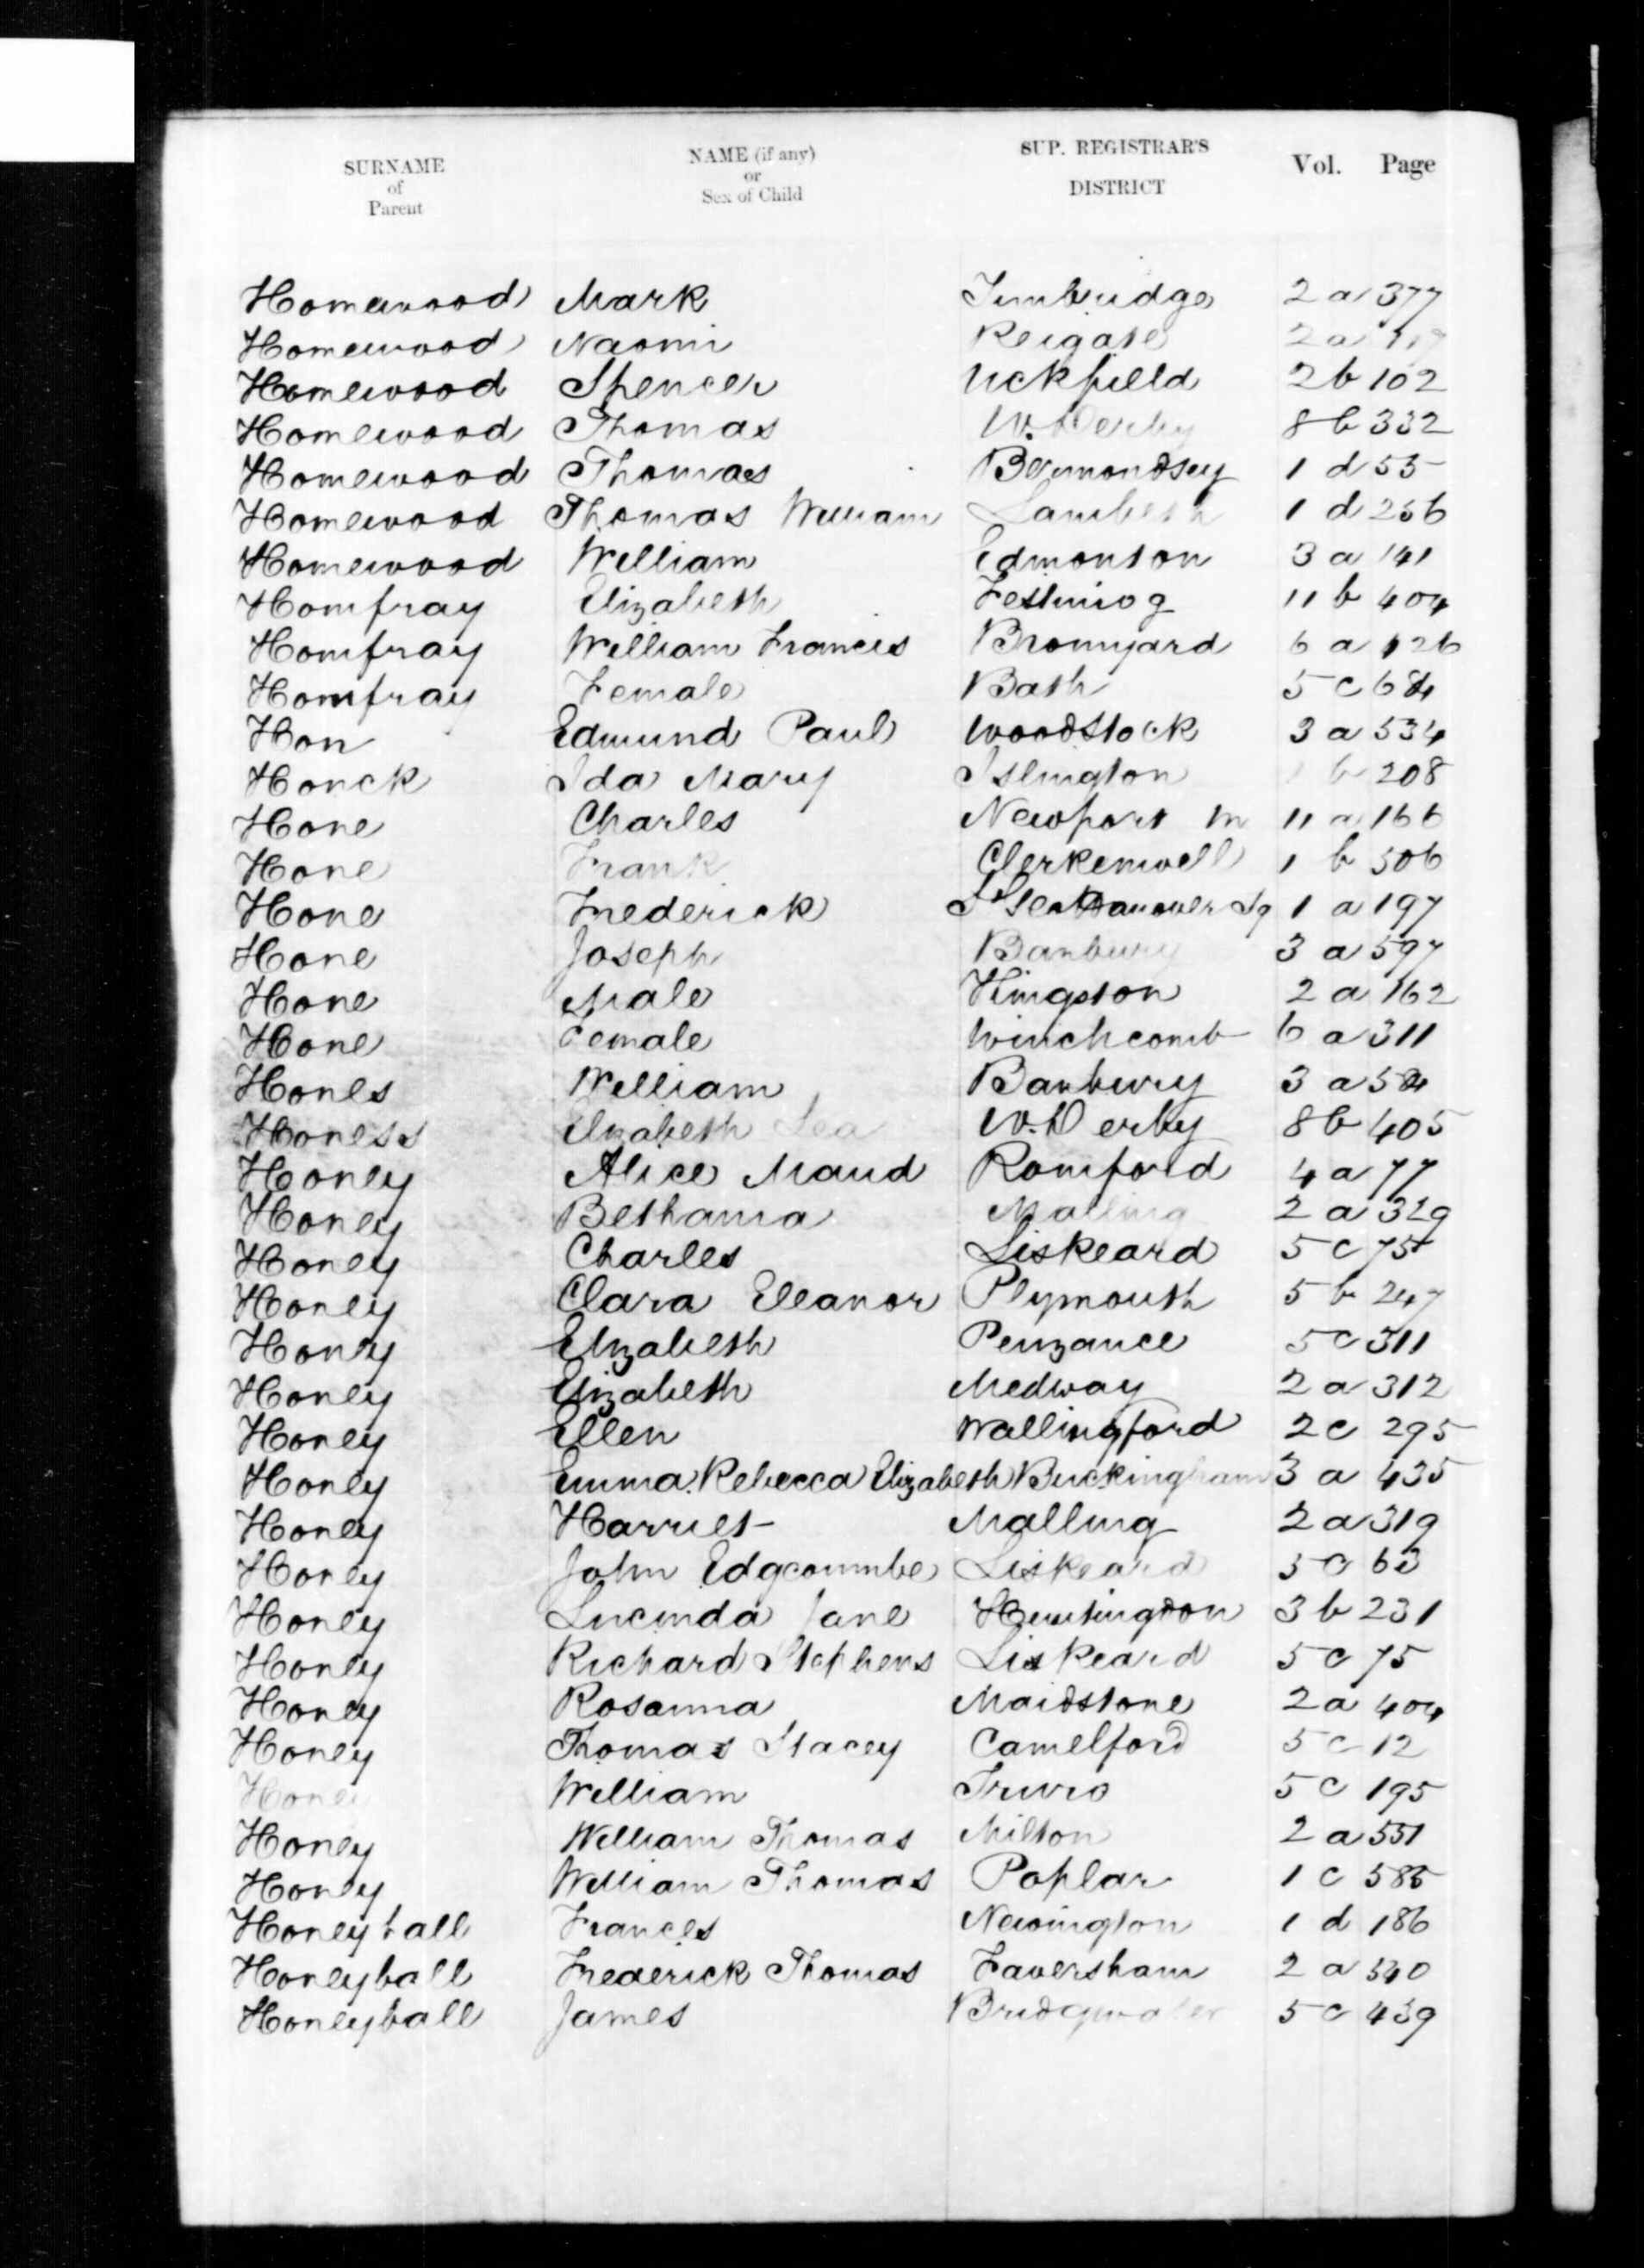 SURNAME of Parent NAME (if any) or Sex of Child SUP. REGISTRAR'S DISTRICT Vol. Page
Homewood Mark Tunbridge 2a 377
Homewood Naomi Reigate 2a
Homewood Spencer Uckfield 2b 102
Homewood Thomas W. Derby 8b 332
Homewood Thomas Bermondsey 1d 55
Homewood Thomas William Lambeth 1d 256
Homewood William Edmonton 3a 141
Homfray Elizabeth Festiniog 11b 404
Homfray William Francis Bromyard 6a 626
Homfray Female Bath 5c
Hon Edmund Paul Woodstock 3a 534
Honck Ida Mary Islington b 208
Hone Charles Newport M 11a 166
Hone Frank Clerkenwell 1b 506
Hone Frederick St Geo Hanover Sq 1a 197
Hone Joseph Banbury 3a 597
Hone Male Kingston 2a 162
Hone Female Winchcomb 6a 311
Hones William Banbury 3a
Honess Elizabeth Lea W. Derby 8b 405
Honey Alice Maud Romford 4a 77
Honey Bethania Malling 2a 329
Honey Charles Liskeard 5c 75
Honey Clara Eleanor Plymouth 5b 247
Honey Elizabeth Penzance 5c 311
Honey Elizabeth Medway 2a 312
Honey Ellen Wallingford 2c 295
Honey Emma Rebecca Elizabeth Buckingham 3a 435
Honey Harriet Malling 2a 319
Honey John Edgcoumbe Liskeard 5c 63
Honey Lucinda Jane Huntingdon 3b 231
Honey Richard Stephens Liskeard 5c 75
Honey Rosanna Maidstone 2a 404
Honey Thomas Stacey Camelford 5c 12
Honey William Truro 5c 195
Honey William Thomas Milton 2a 551
Honey William Thomas Poplar 1c 585
Honeyball Frances Newington 1d 186
Honeyball Frederick Thomas Faversham 2a 540
Honeyball James Bridgwater 5c 439